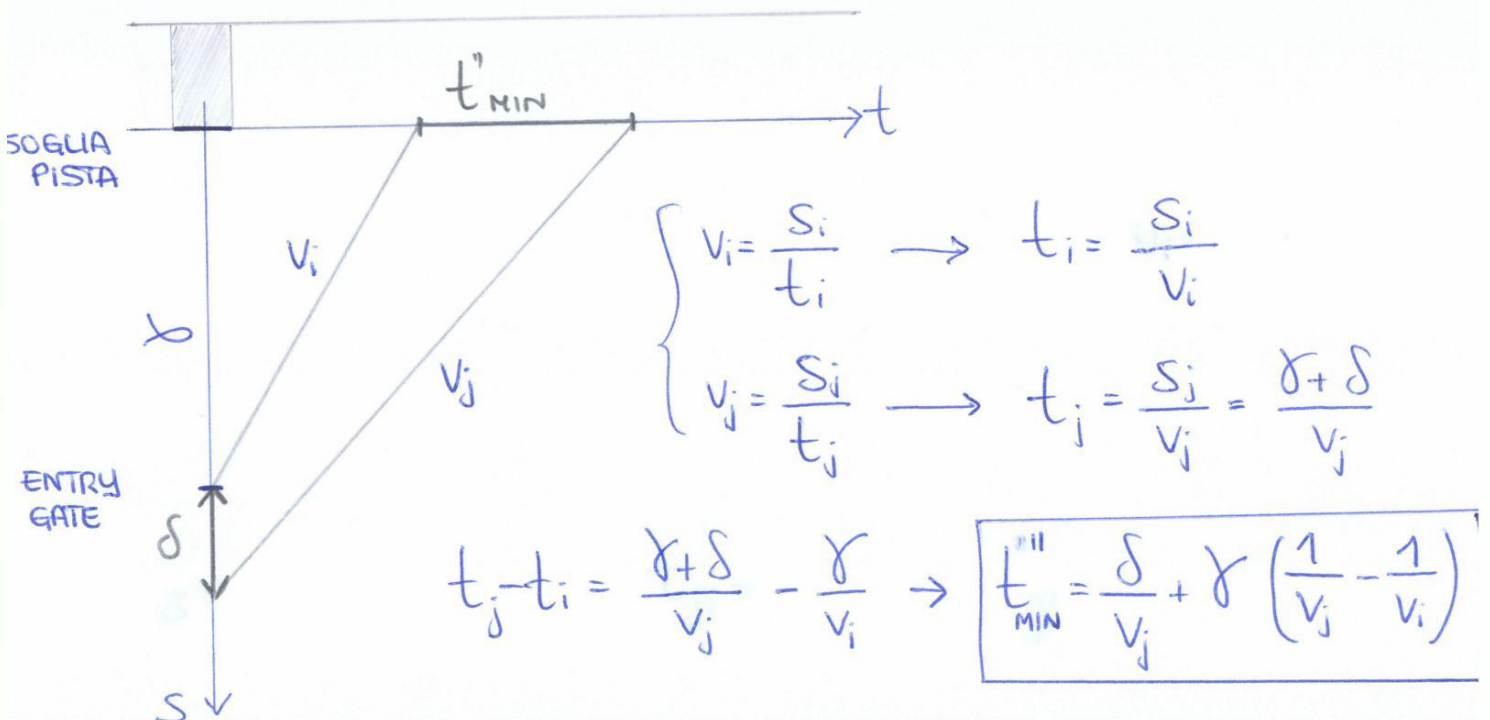 t"MIN
t
SOGLIA
PISTA
Vi
γ
Vj
ENTRY
GATE
δ
S
Vi = Si/ti → ti = Si/Vi
Vj = Sj/tj → tj = Sj/Vj = (γ+δ)/Vj
tj - ti = (γ+δ)/Vj - γ/Vi → t"MIN = δ/Vj + γ (1/Vj - 1/Vi)